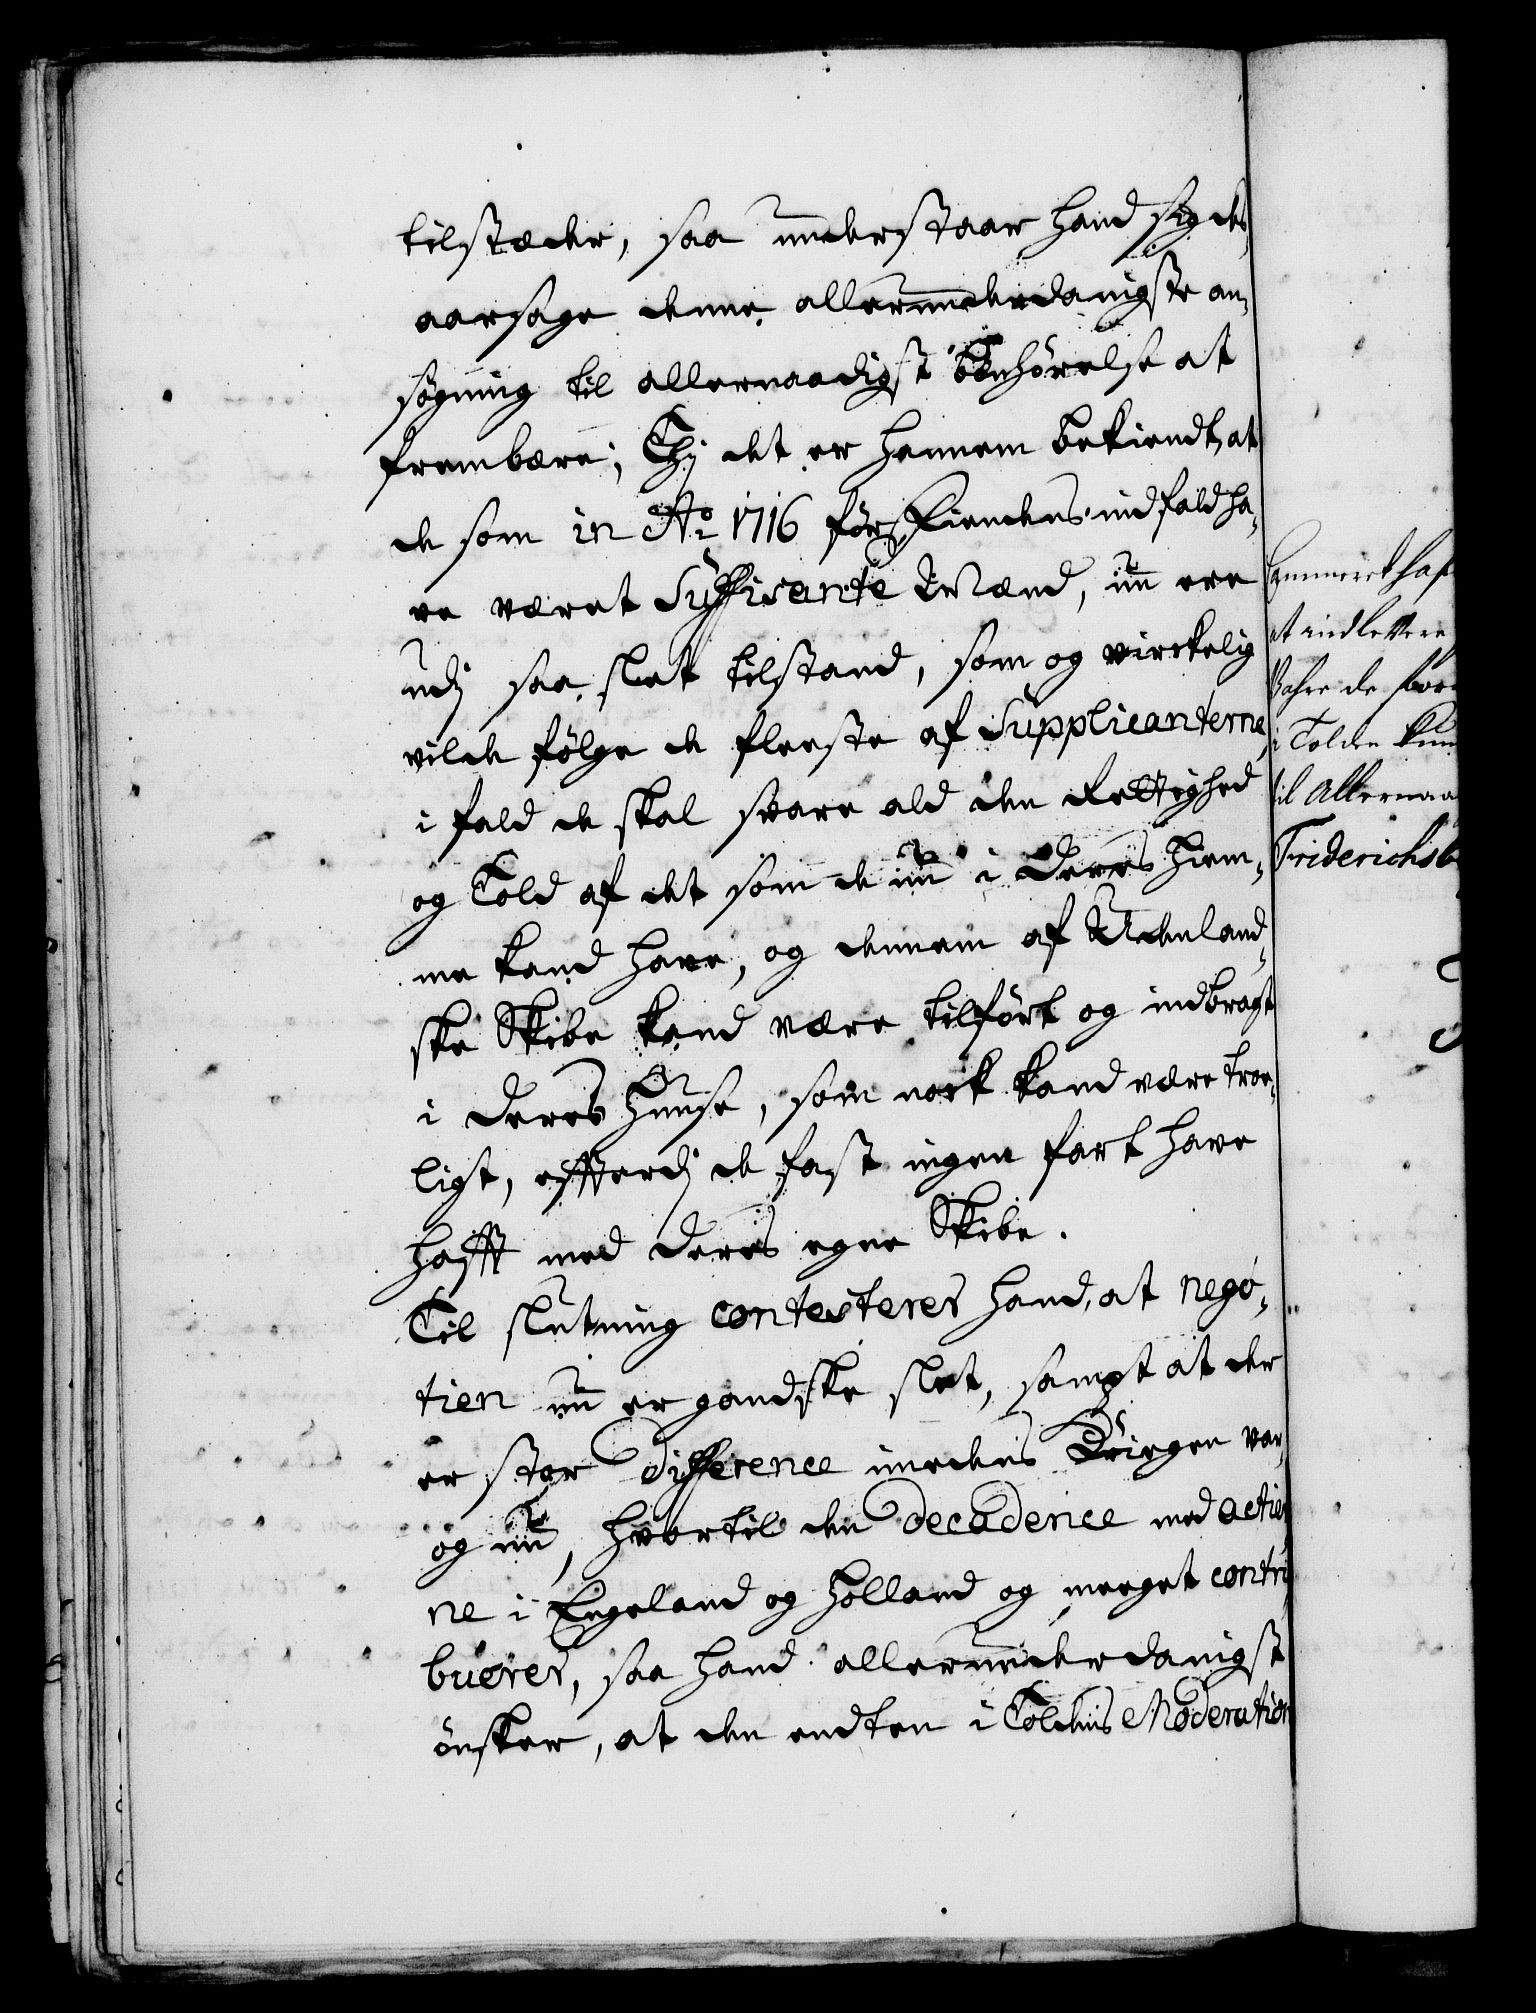 tilstæder, saa understaar hand sig des
aarsage denne allerunderdanigste an¬
søgning til allernaadigst bönhörelse at
frembære; Thj det er hannem bekiendt, at
de som in Ao 1716 för Fiendens indfald ha¬
ve været Suffisante Mænd, nu ere
udj saa slet tilstand, som og virckelig
vilde følge de fleeste af Supplicanterne,
i fald de skal svare ald den Rettighed
og Told af det som de nu i Deres Giem¬
me kand have, og dennem af Udenland¬
ske Skibe kand være tilfört og indbragt
i deres Huuse, som nock kand være troe¬
ligt, effterdj de fast ingen fart have
hafft med deres egne Skibe.
Til slutning contesterer hand, at nego¬
tien nu er gandske slet, sampt at der
er stor Difference imedens Kriegen var
og nu, hvortil den Decadence med actier¬
ne i Engeland og Holland og meeget contri¬
buerer, saa hand allerunderdanigst
önsker, at den endten i Toldens Moderation
at indlevere
Vahre de
i Tolden
til Allernaa
Friderichsb